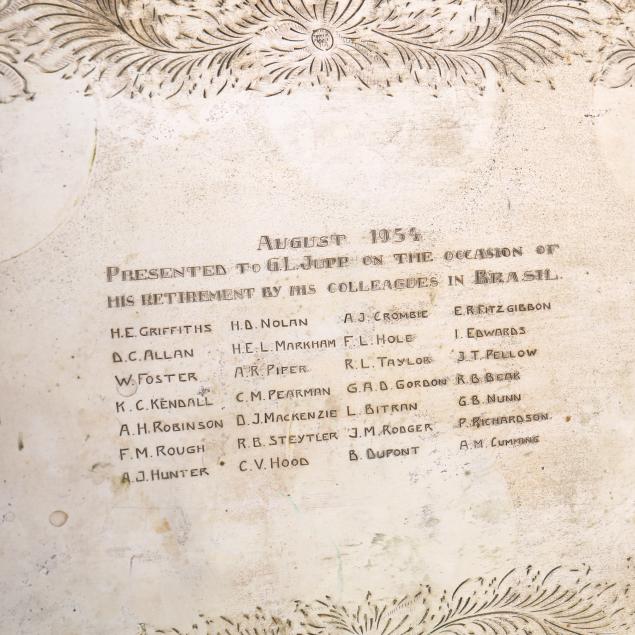 AUGUST 1954
PRESENTED TO G.L.JUPP ON THE OCCASION OF
HIS RETIREMENT BY HIS COLLEAGUES IN BRASIL.
H.E.GRIFFITHS H.D.NOLAN A.J.CROMBIE E.R.FITZGIBBON
D.C.ALLAN H.E.L.MARKHAM F.L.HOLE I.EDWARDS
W.FOSTER A.R.PIPER R.L.TAYLOR J.T.PELLOW
K.C.KENDALL C.M.PEARMAN G.A.D.GORDON R.B.BEAK
A.H.ROBINSON D.J.MACKENZIE L.BITRAN G.B.NUNN
F.M.ROUGH R.B.STEYTLER J.M.RODGER P.RICHARDSON
A.J.HUNTER C.V.HOOD B.DUPONT A.M.CUMMING